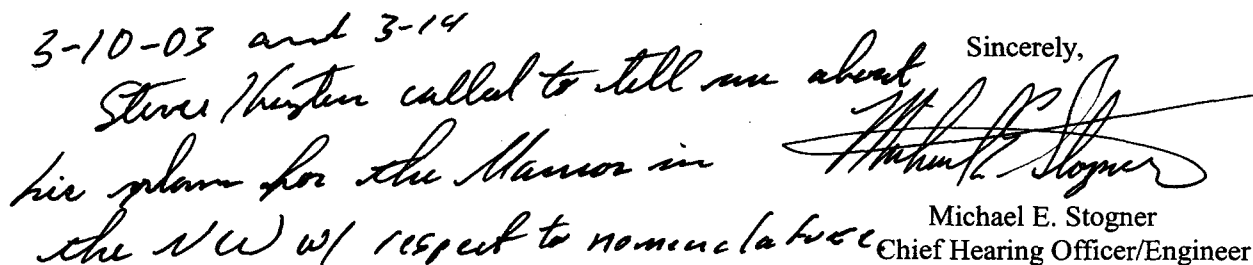 3-10-03 and 3-14
Steve called to tell me about
his plans for the Mancos in
the NW w/ respect to nomenclature
Sincerely,
Michael E. Stogner
Michael E. Stogner
Chief Hearing Officer/Engineer